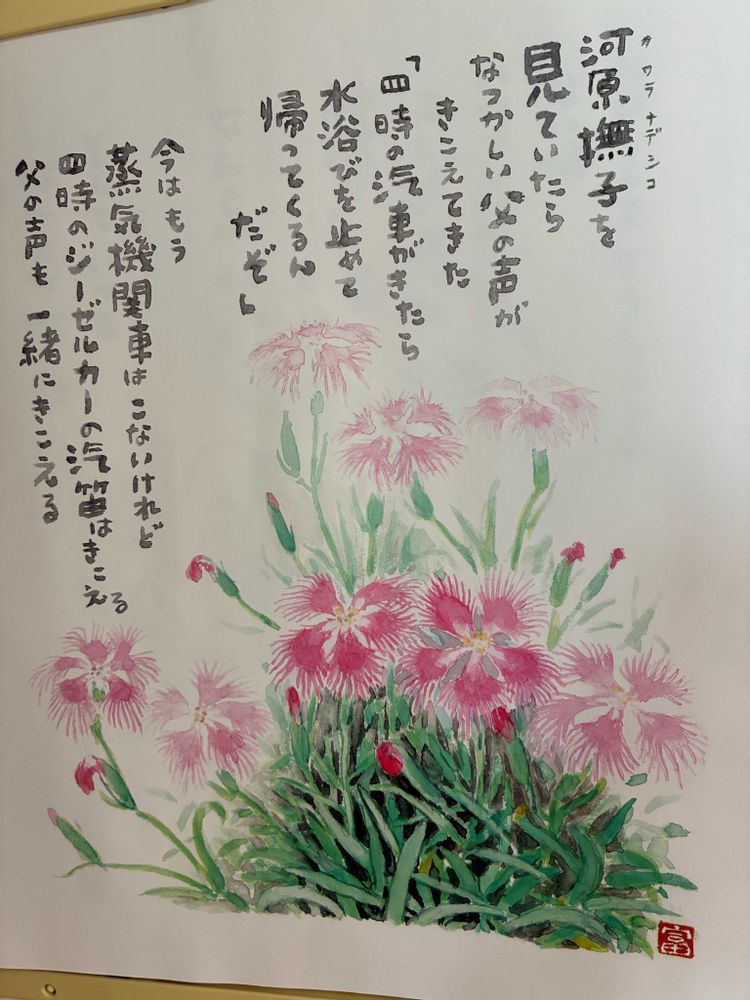 カワラナデシコ
河原撫子を
見ていたら
なつかしい父の声が
きこえてきた
「四時の汽車がきたら
水浴びを止めて
帰ってくるん
だぞ」
今はもう
蒸気機関車はこないけれど
四時のジーゼルカーの汽笛はきこえる
父の声も一緒にきこえる
富